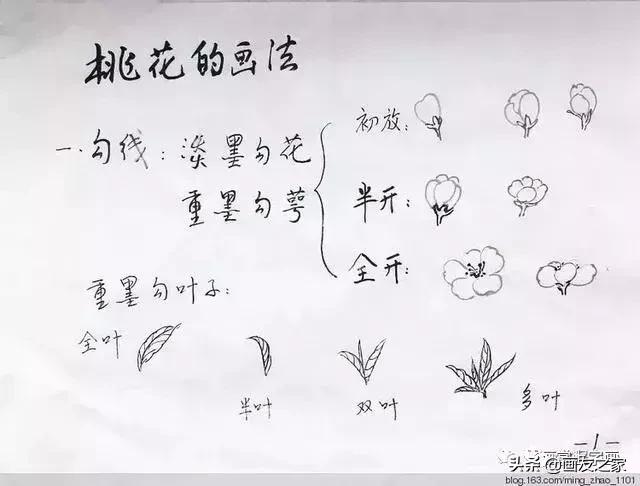 桃花的画法
一.勾线：淡墨勾花
重墨勾萼
初放：
半开：
全开：
重墨勾叶子：
全叶
半叶
双叶
多叶
-1-
头条@画友之家
blog.163.com/ming_zhao_1101